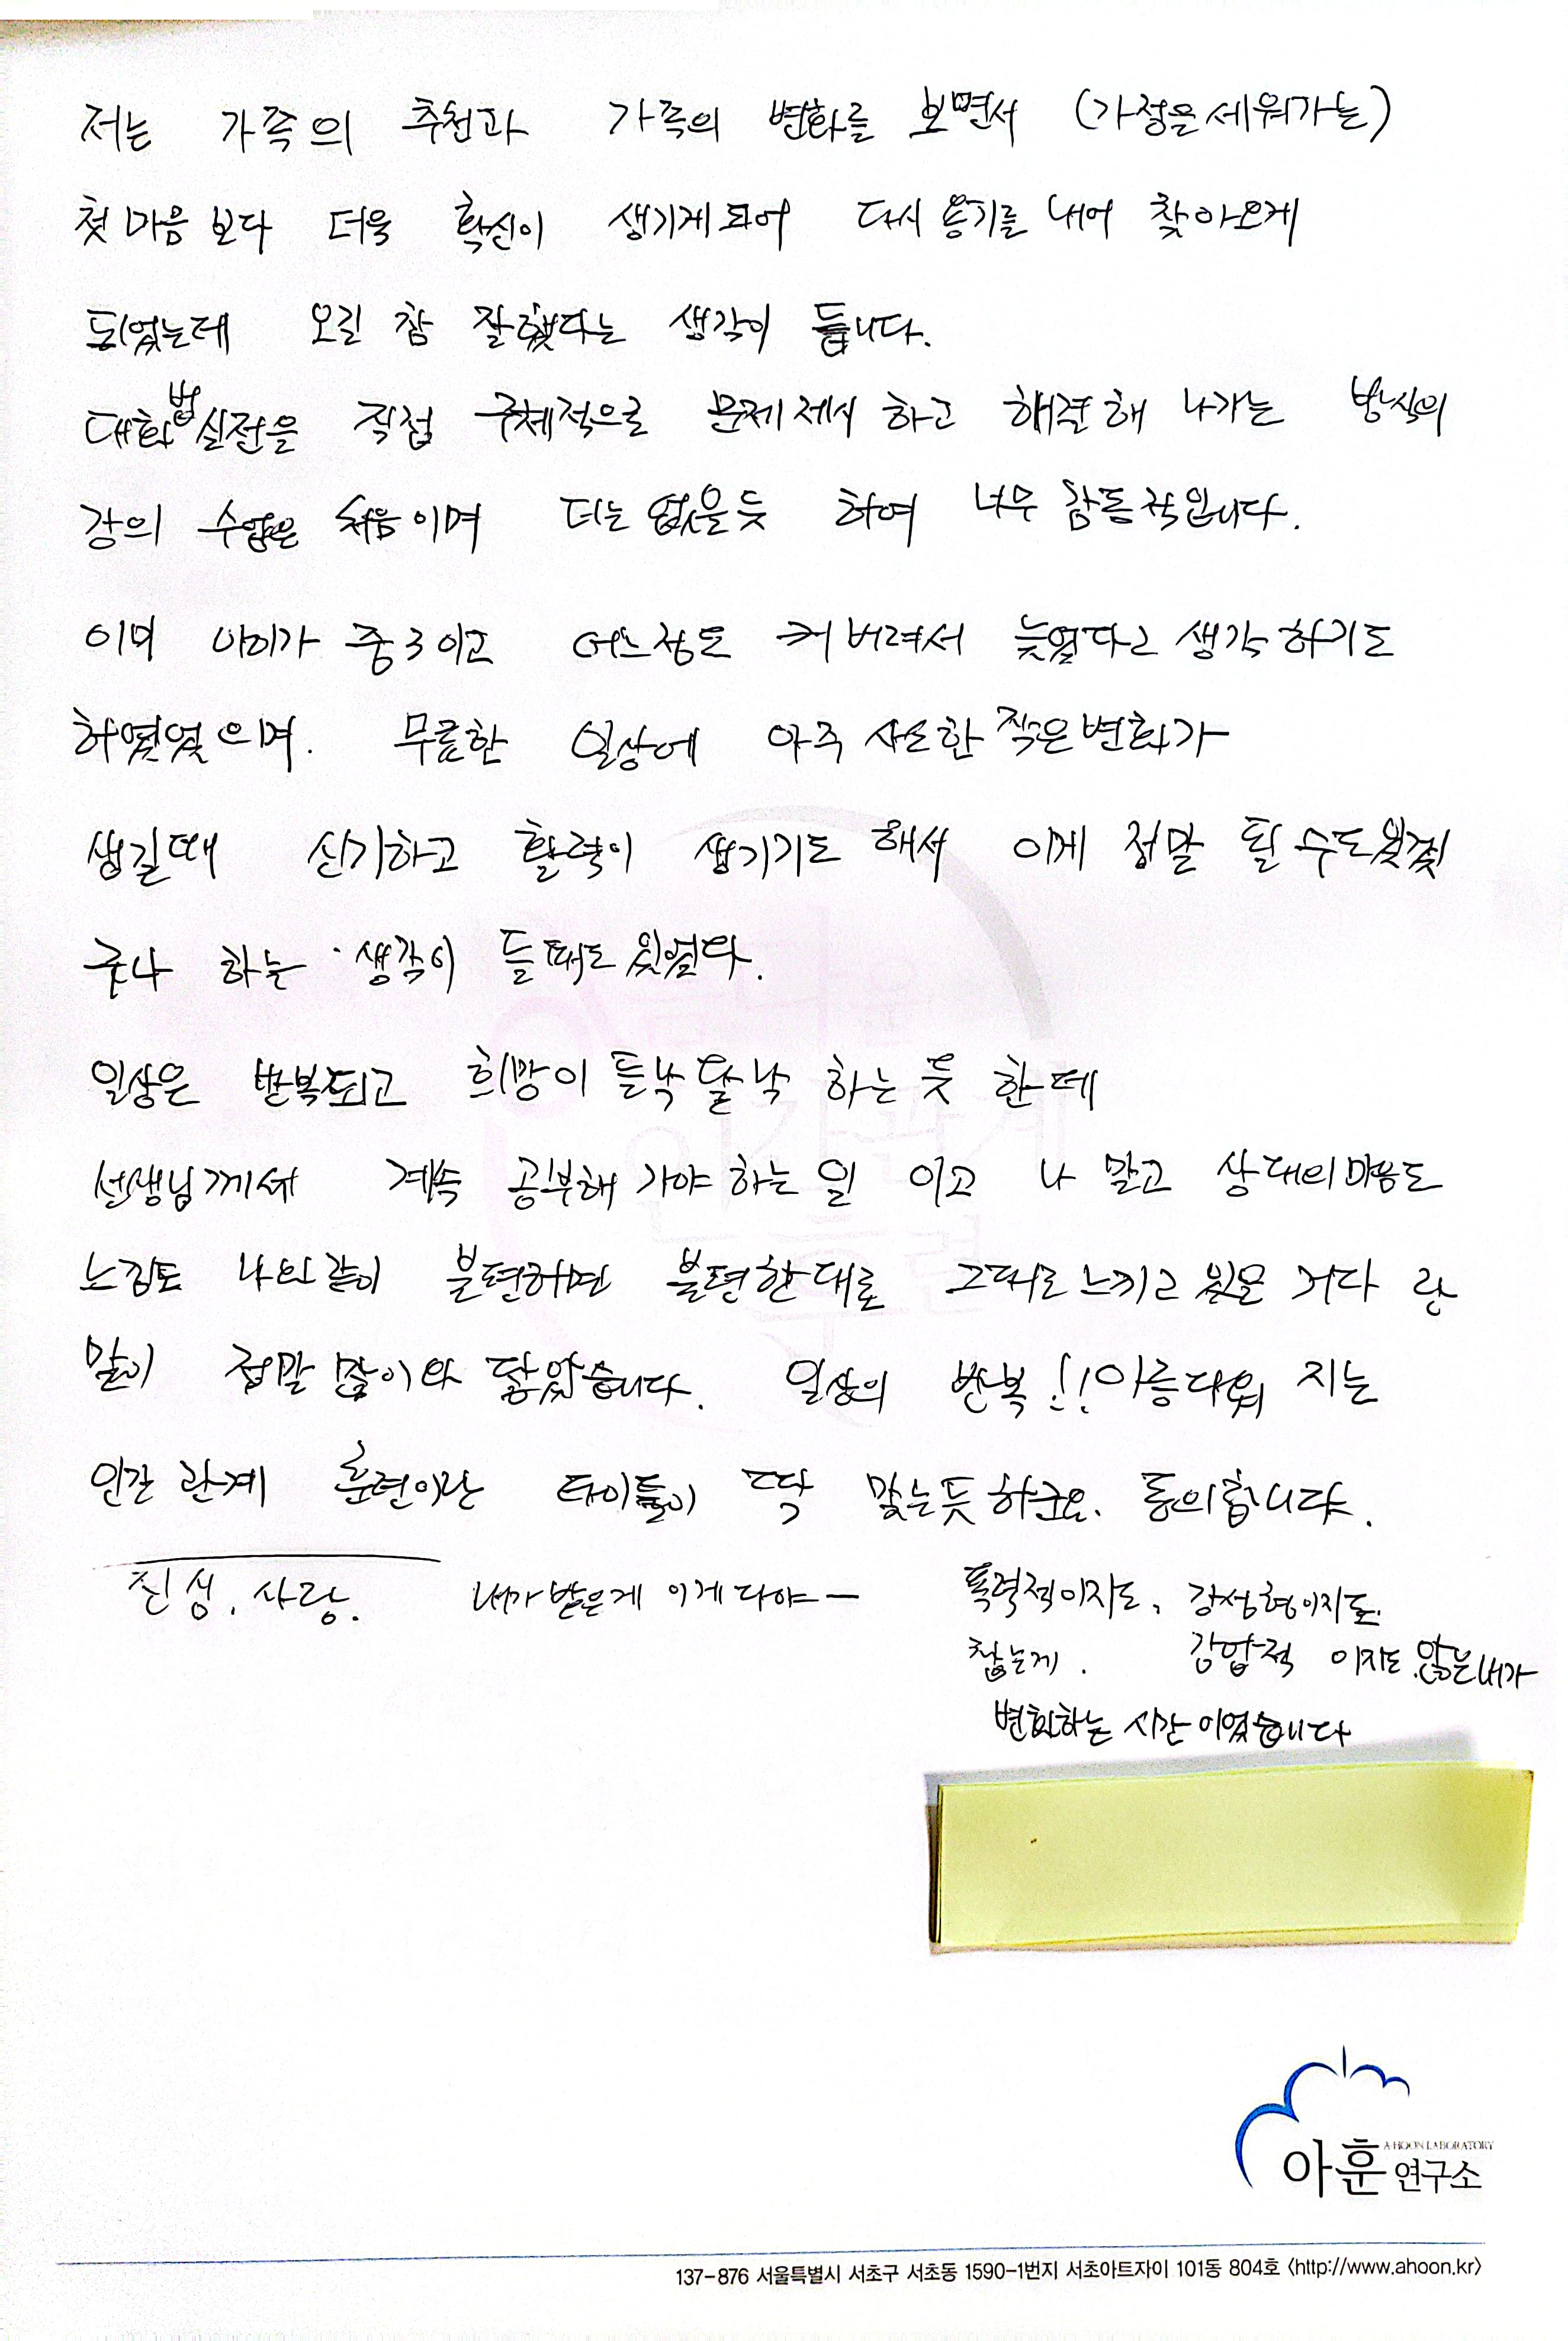 저는 가족의 추천과 가족의 변화를 보면서 (가정을세워가는)
첫 마음 보다 더욱 확신이 생기게 되어 다시 용기를 내어 찾아오게
되었는데 오길 참 잘했다는 생각이 듭니다.
대화법 실전을 직접 구체적으로 문제 제시 하고 해결해 나가는 방식의
강의 수업은 처음이며 더는 없을듯 하여 너무 감동적입니다.
이미 아이가 중3이고 어느정도 커버려서 늦었다고 생각하기도
하였었으며. 무료한 일상에 아주 사소한 작은변화가
생길때 신기하고 활력이 생기기도 해서 이게 정말 될 수도있겠
구나 하는 생각이 들때도 있었다.
일상은 반복되고 희망이 들낙 달낙 하는 듯 한데
선생님께서 계속 공부해 가야 하는 일 이고 나 말고 상대의 마음도
느낌도 나와같이 불편하면 불편한대로 그대로 느끼고 있을 거다 란
말이 정말 많이 와 닿았습니다. 일상의 반복!! 아름다워 지는
인간 관계 훈련이란 타이틀이 딱 맞는듯 하군요. 동의합니다.
진심. 사랑. 내가 받은게 이게 다야 —
폭력적이지도, 강성형이지도.
참는게. 강압적 이지도 않은 내가
변화하는 시간 이었습니다
아훈 연구소
A HOON LABORATORY
137-876 서울특별시 서초구 서초동 1590-1번지 서초아트자이 101동 804호 〈http://www.ahoon.kr〉